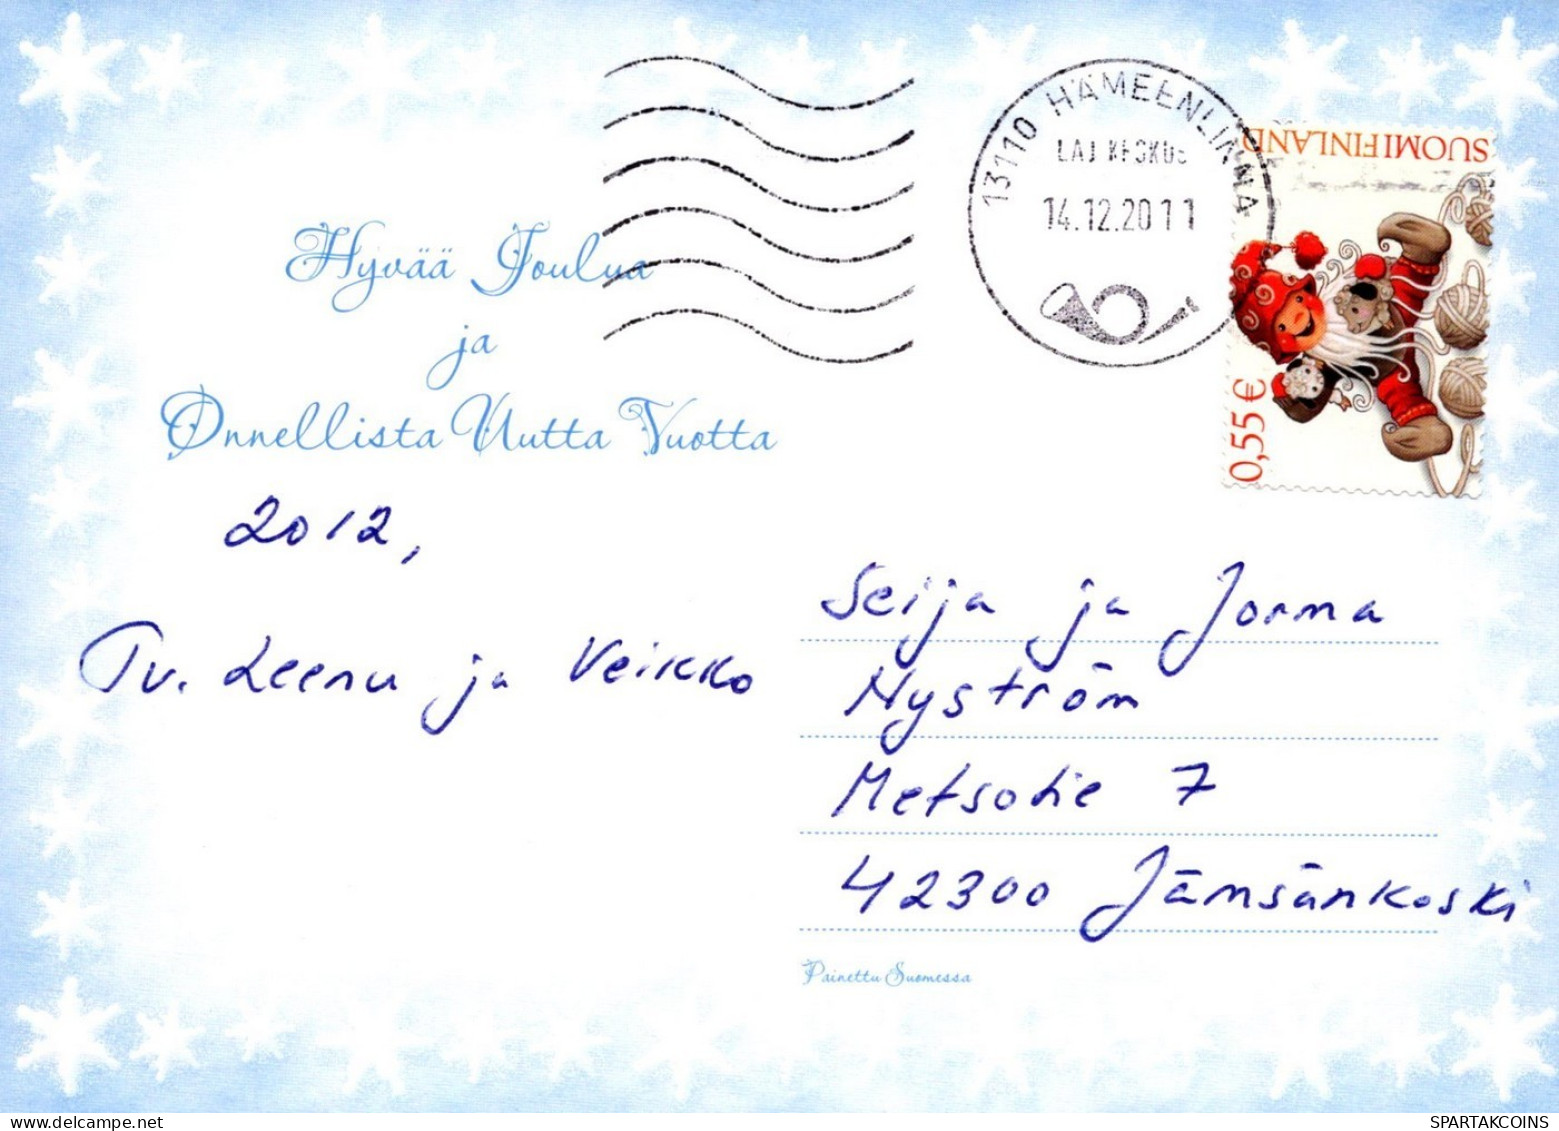 13110 HÄMEENLINNA
14.12.2011
SUOMI FINLAND
0,55 €
Hyvää Joulua
ja
Onnellista Uutta Vuotta
2012,
Tv. Leenu ja Veikko
Seija ja Jorma
Nyström
Metsotie 7
42300 Jämsänkoski
Painettu Suomessa
delcampe.net
SPARTAKCOINS